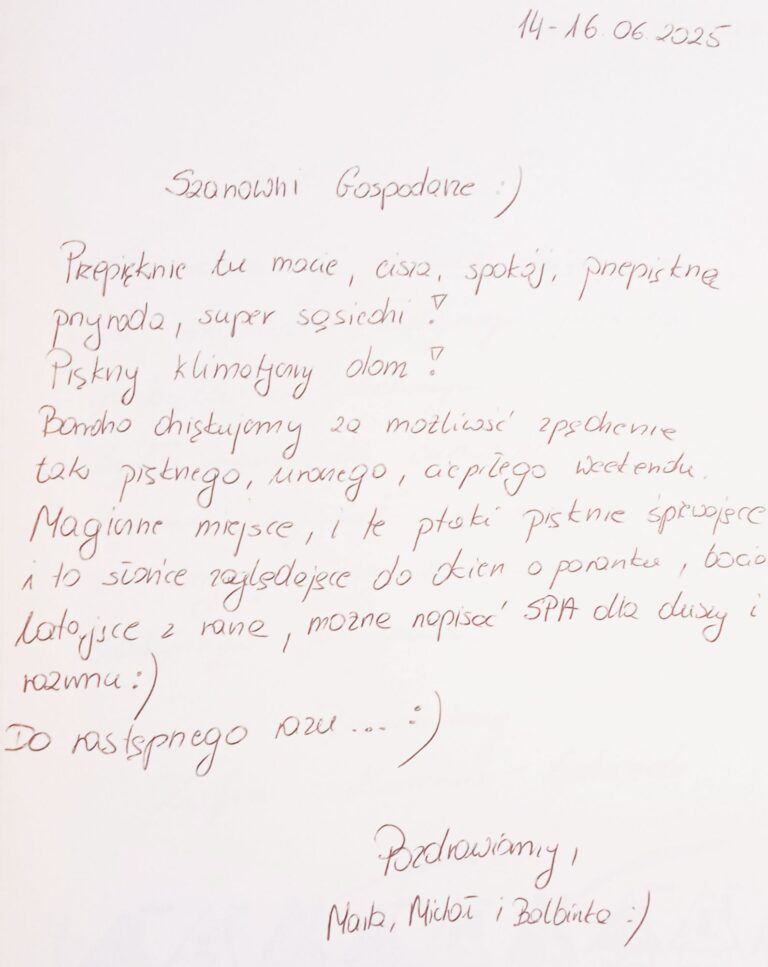 14-16.06.2025
Szanowni Gospodarze :)
Przepięknie tu macie, cisza, spokój, przepiękna
przyroda, super sąsiedzi!
Piękny klimatyczny dom!
Bardzo dziękujemy za możliwość spędzenia
tak pięknego, uroczego, ciepłego weekendu.
Magiczne miejsce, i te ptaki pięknie śpiewające
i to słońce zaglądające do okien o poranku,
latające z rana, można napisać SPA dla duszy i
rozumu :)
Do następnego razu ... :)
Pozdrawiamy,
Michał i Balbinka :)